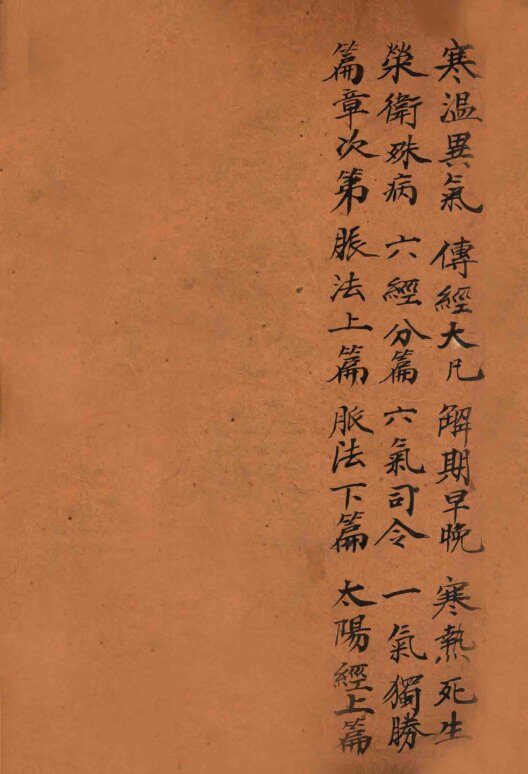 寒温異氣 傳經大凡 解期早晚 寒熱死生
榮衛殊病 六經分篇 六氣司令 一氣獨勝
篇章次第 脈法上篇 脈法下篇 太陽經上篇